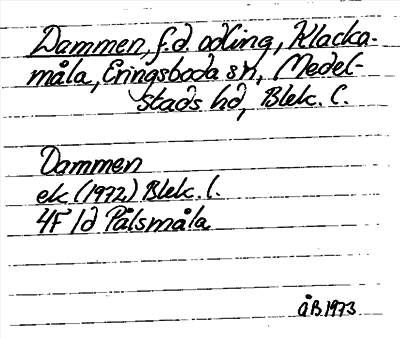 Dammen, f.d. odling, Klacka-
måla, Eringsboda sn, Medel-
stads hd, Blek. l.
Dammen
ek (1972) Blek. l.
4F 1d Pålsmåla
ÅB 1973